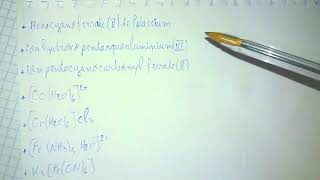 • Hexacyanoferrate (II) de Potassium
• ion hydroxopentaaquoaluminium (III)
• ion pentacyanocarbonyl ferrate (II)
• [Co(H₂O)₆]²⁺
• [Cr(H₂O)₆]Cl₃
• [Fe(NH₃)₅ H₂O]²⁺
• K₄[Fe(CN)₆]